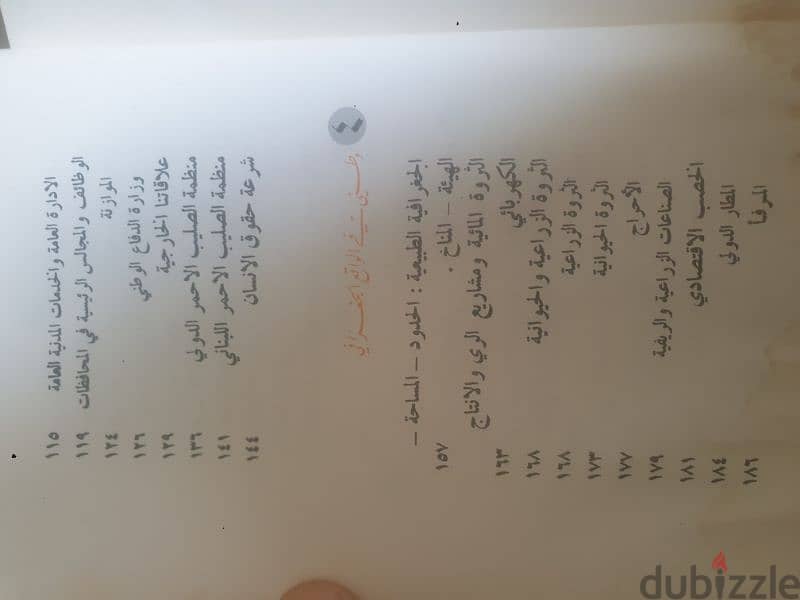 الادارة العامة والخدمات المدنية العامة ١١٥
الوظائف والمجالس الرئيسية في المحافظات ١١٩
الموازنة ١٢٤
وزارة الدفاع الوطني ١٢٦
علاقاتنا الخارجية ١٢٩
منظمة الصليب الاحمر الدولي ١٣٦
منظمة الصليب الاحمر اللبناني ١٤١
شرعة حقوق الانسان ١٤٤
٤
وطني في الواقع الجغرافي
الجغرافية الطبيعية : الحدود – المساحة –
الهيئة – المناخ . ١٥٧
الثروة المائية ومشاريع الري والانتاج
الكهربائي ١٦٣
الثروة الزراعية والحيوانية ١٦٨
الثروة الزراعية ١٦٨
الثروة الحيوانية ١٧٣
الأحراج ١٧٧
الصناعات الزراعية والريفية ١٧٩
الخصب الاقتصادي ١٨١
المطار الدولي ١٨٤
المرفأ ١٨٦
dubizzle